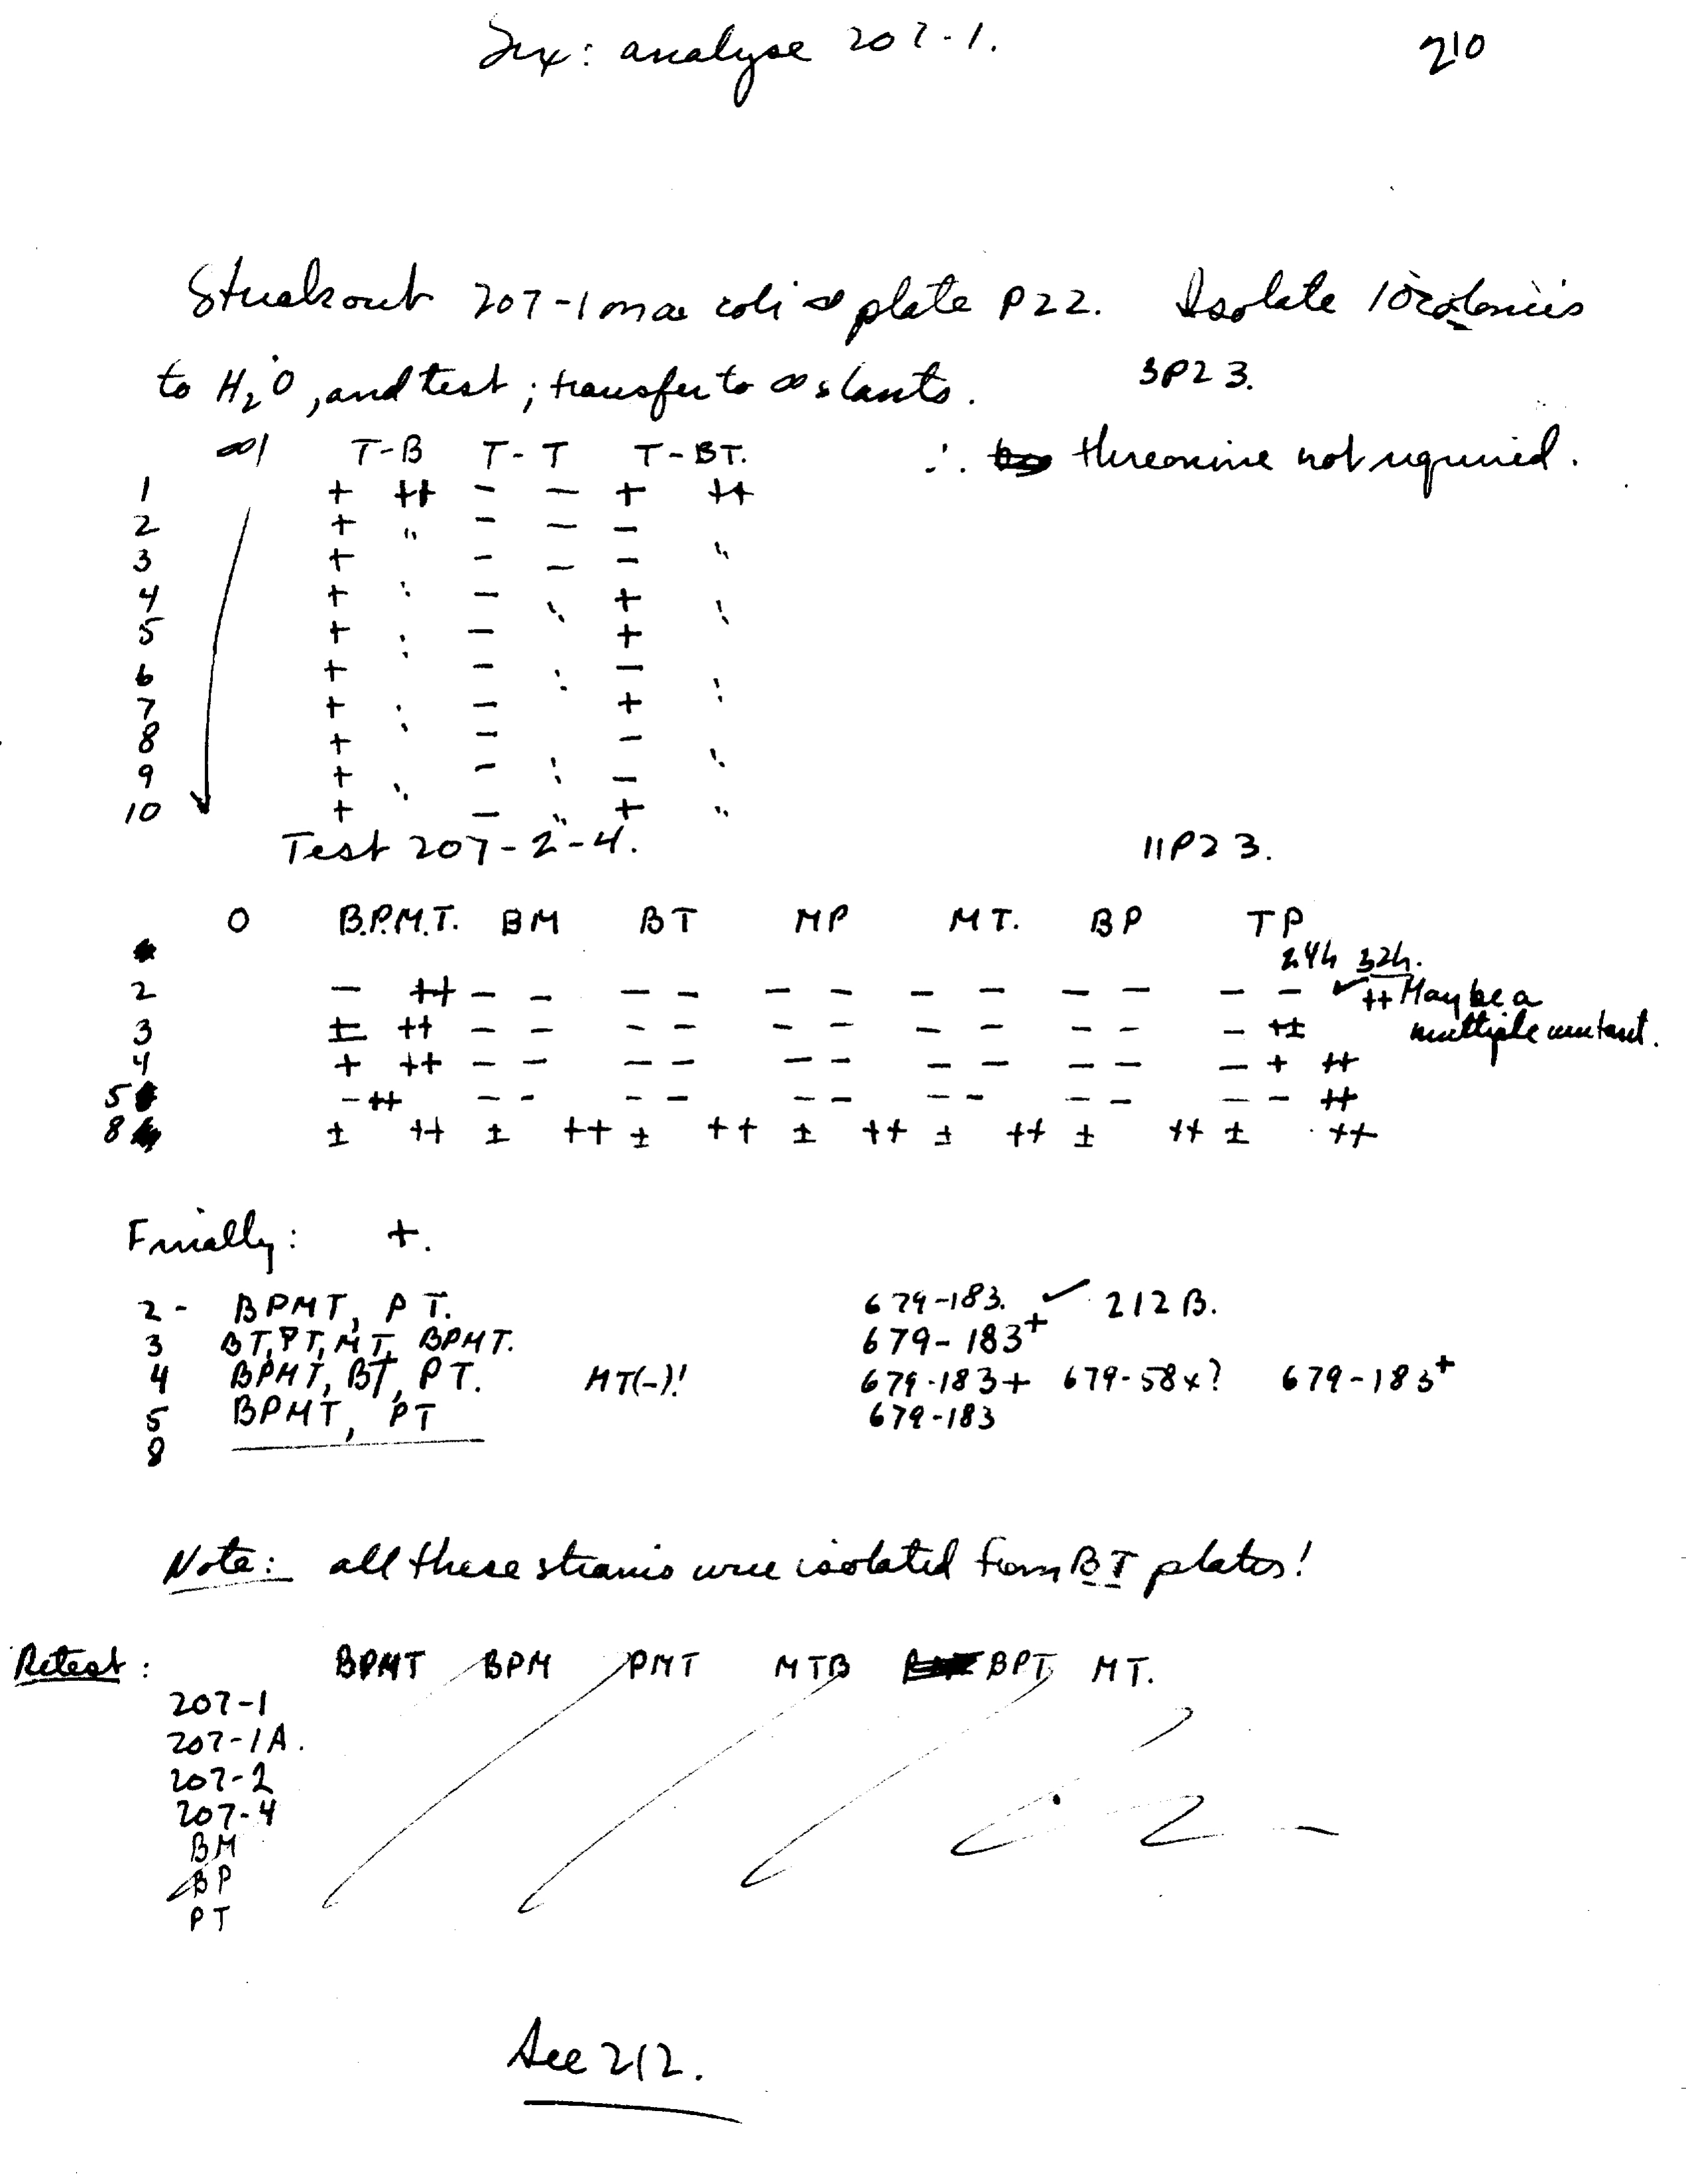 Sex: analyse 207-1. 210
Streak out 207-1 on a coli ∞ plate P22. Isolate 10 colonies
to H2O, and test; transfer to ∞ slants. 3P23.
T-B T-T T-BT. ∴ threonine not required.
1 + ++ - - + ++
2 + " - - -
3 + - - - "
4 + " - " + "
5 + " - +
6 + - " - "
7 + " - +
8 + " - -
9 + " - " - "
10 + - " + "
Test 207-2-4. 11P23.
0 B.P.M.T. BM BT MP MT. BP TP
24h 32h.
2 - ++ - - - - - - - - - - - - ✓ ++ May be a
3 ± ++ - - - - - - - - - - - +± multiple mutant.
4 + ++ - - - - - - - - - - - + ++
5 - ++ - - - - - - - - - - - - ++
8 ± ++ ± ++ ± ++ ± ++ ± ++ ± ++ ± ++
Finally: +.
2 - BPMT, PT. 679-183. ✓ 212B.
3 BT, PT, MT, BPMT. 679-183+
4 BPMT, BT, PT. MT(-)! 679-183+ 679-58x? 679-183+
5 BPMT, PT 679-183
8
Note: all these strains were isolated from BT plates!
Retest: BPMT BPM PMT MTB BPT MT.
207-1
207-1A.
207-2
207-4
BM
BP
PT
See 212.